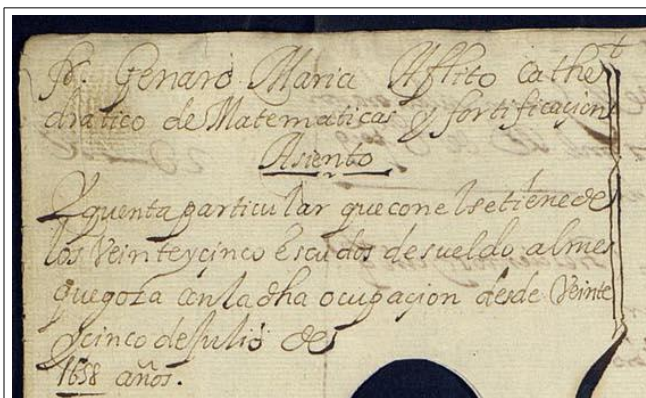 Fr. Genaro Maria Aflito Cathe
dratico de Matematicas y fortificacion
Asiento
Y quenta particular que con el se tiene de
los Veinte y cinco escudos de sueldo al mes
que goza con la dha ocupacion desde Veinte
y cinco de Julio de
1658 años.